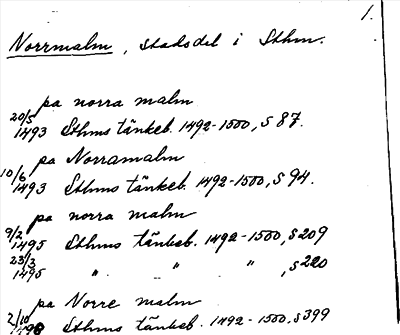 1.
Norrmalm, stadsdel i Sthm.
pa norra malm
20/5 1493 Sthms tänkeb. 1492-1500, S 87.
pa Norramalm
10/6 1493 Sthms tänkeb. 1492-1500, S 94.
pa norra malm
9/2 1495 Sthms tänkeb. 1492-1500, S 209
23/3 1495 " " " , S 220
pa Norre malm
2/10 1498 Sthms tänkeb. 1492-1500, S 399